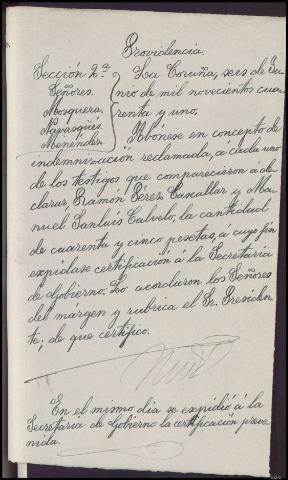 Providencia.
Sección 2ª
Señores.
Mosquera.
Navasqüés.
Menéndez.
La Coruña, seis de Ju-
nio de mil novecientos cua-
renta y uno.
Abónese en concepto de
indemnización reclamada, á cada uno
de los testigos que comparecieron á de-
clarar, Ramón Pérez Cascallar y Ma-
nuel Sanluís Calvelo, la cantidad
de cuarenta y cinco pesetas, á cuyo fin
expídase certificación á la Secretaria
de Gobierno. Lo acordaron los Señores
del márgen y rubrica el Sr. Presiden-
te; de que certifico.
En el mismo dia se expidió á la
Secretaria de Gobierno la certificación preve-
nida.